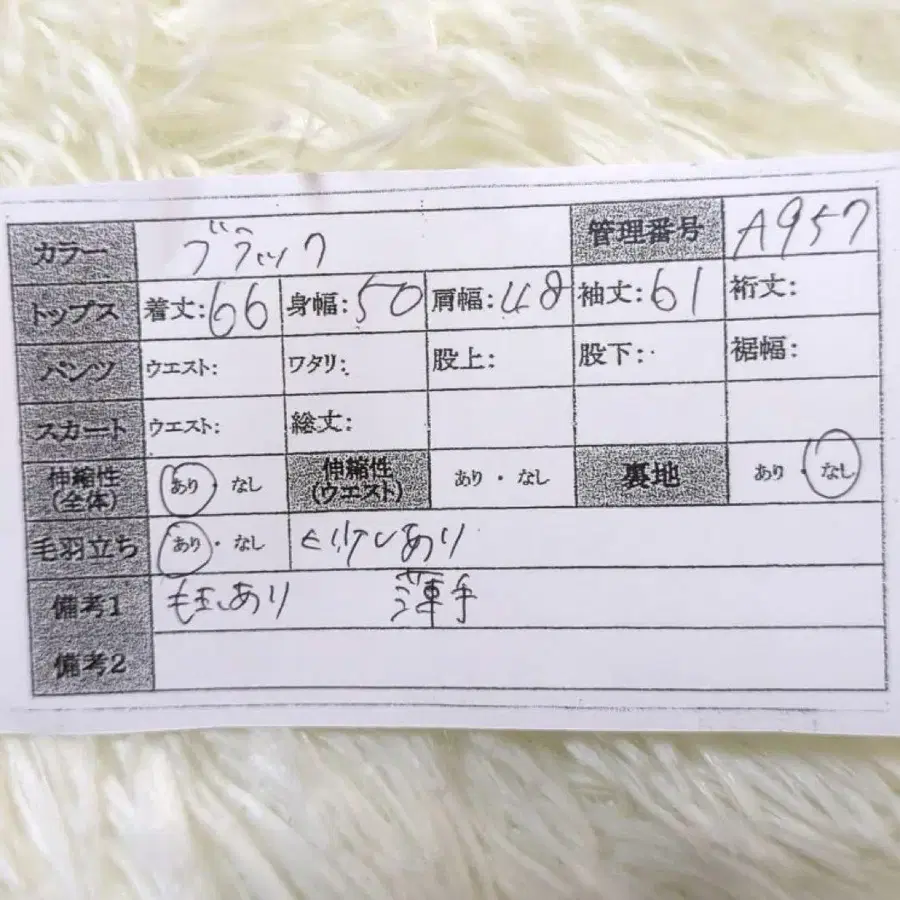 カラー ブラック 管理番号 A957
トップス 着丈:66 身幅:50 肩幅:48 袖丈:61 裄丈:
パンツ ウエスト: ワタリ: 股上: 股下: 裾幅:
スカート ウエスト: 総丈:
伸縮性(全体) あり・なし 伸縮性(ウエスト) あり・なし 裏地 あり・なし
毛羽立ち あり・なし ヒリケしあり
備考1 毛玉あり 薄手
備考2